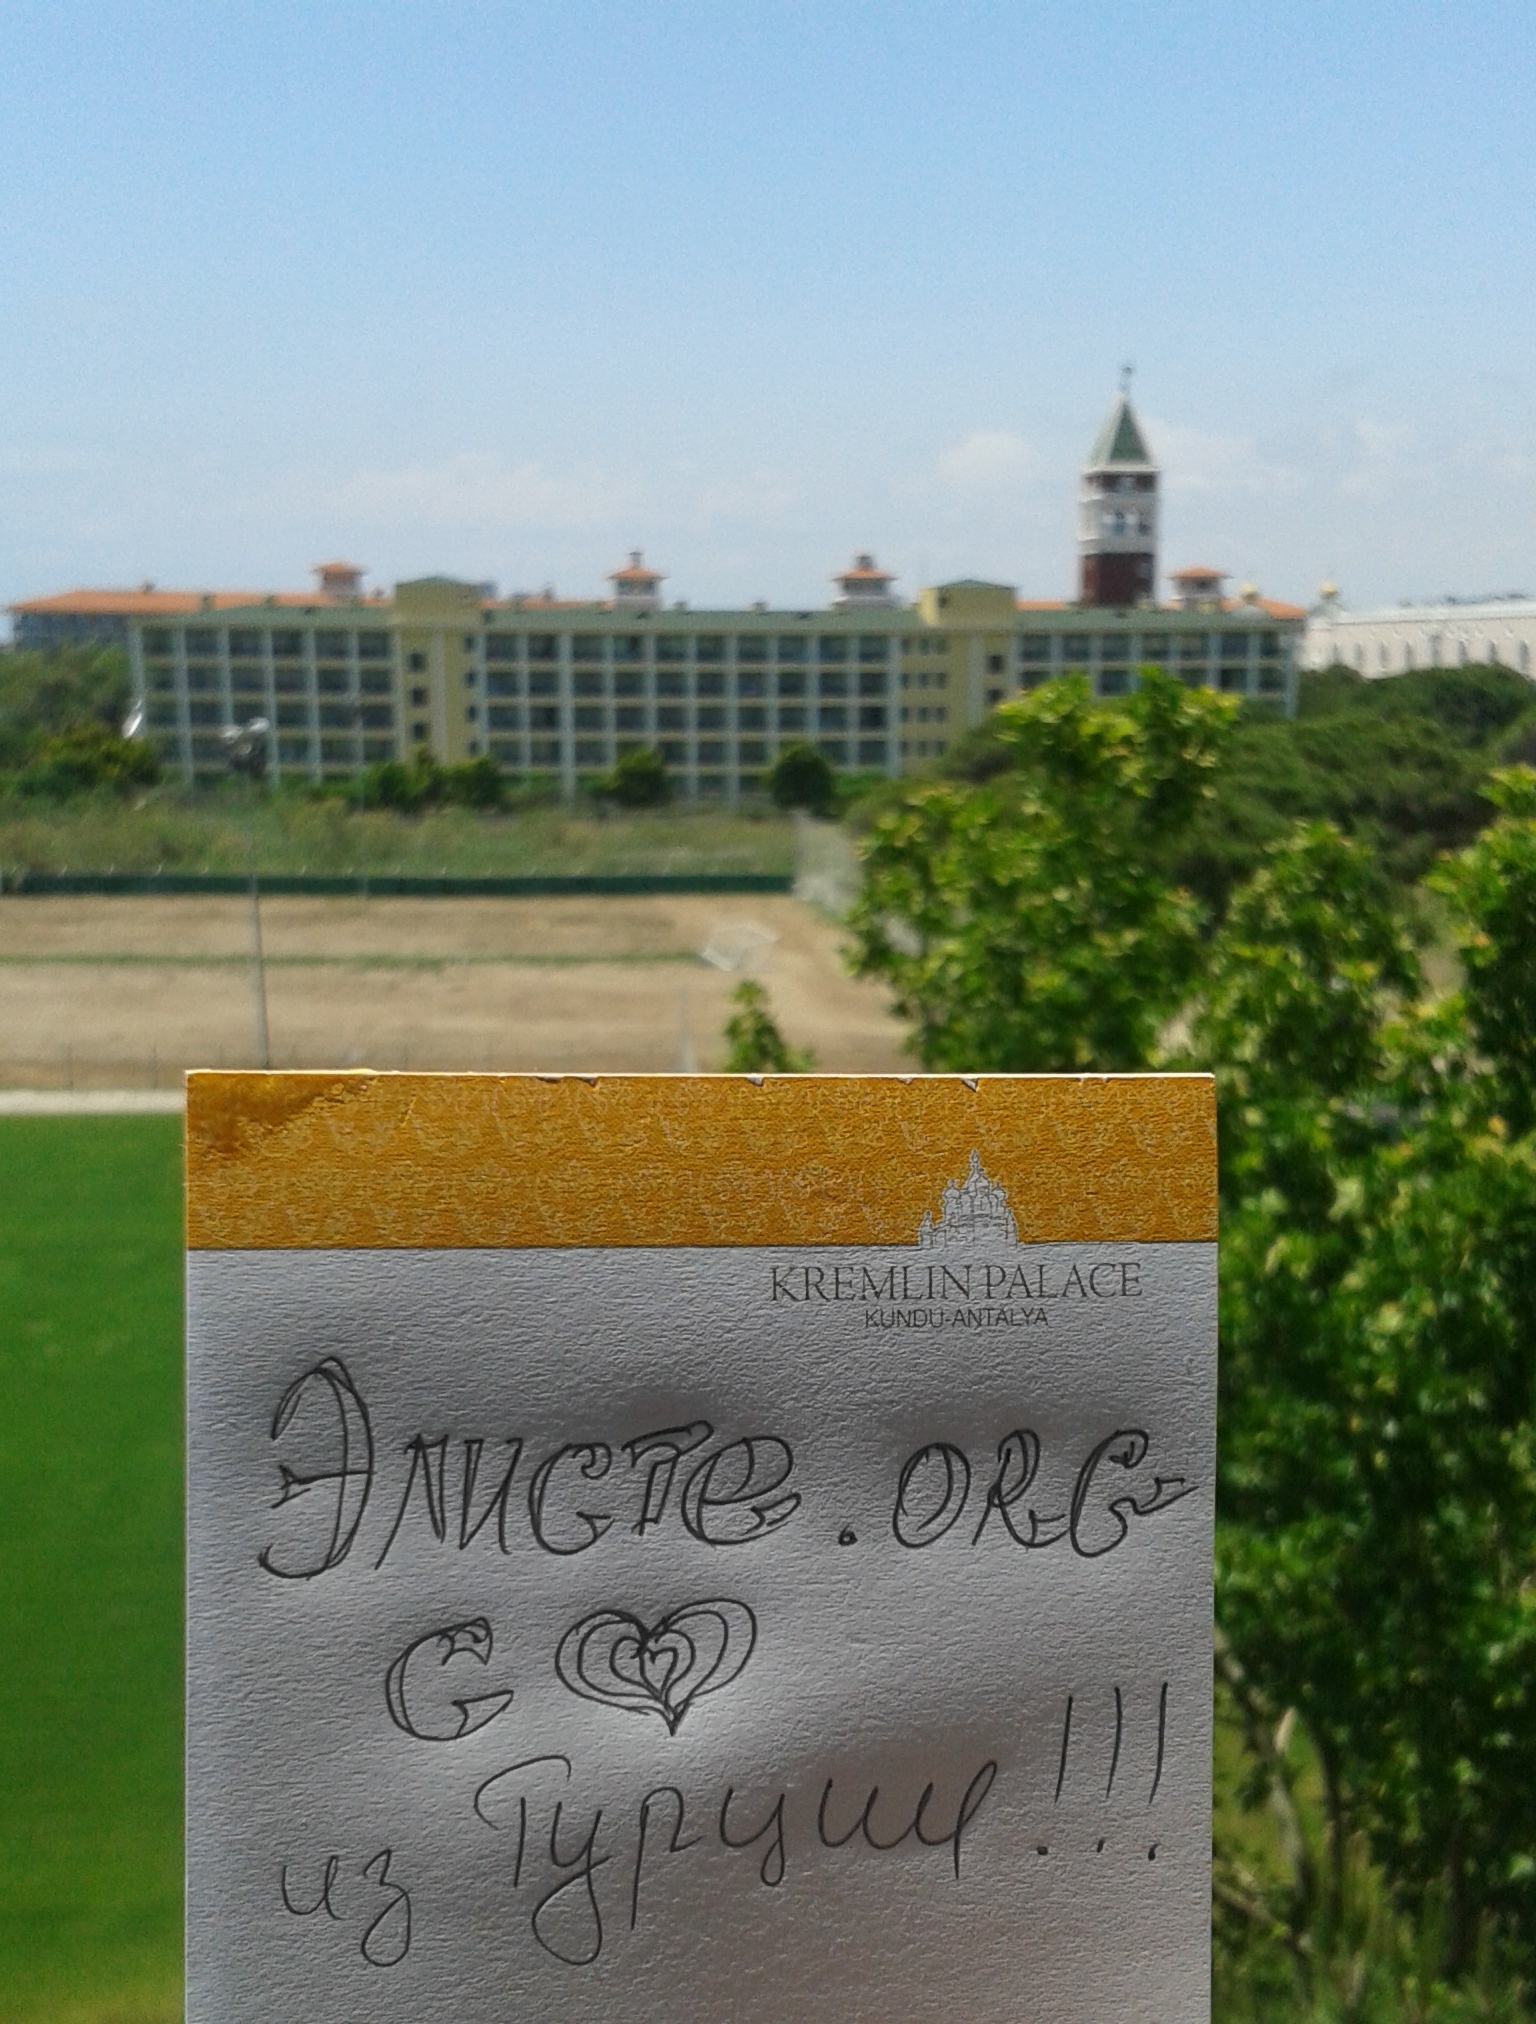 KREMLIN PALACE
KUNDU-ANTALYA
Элисте.ORG
С ♡
из Турции!!!